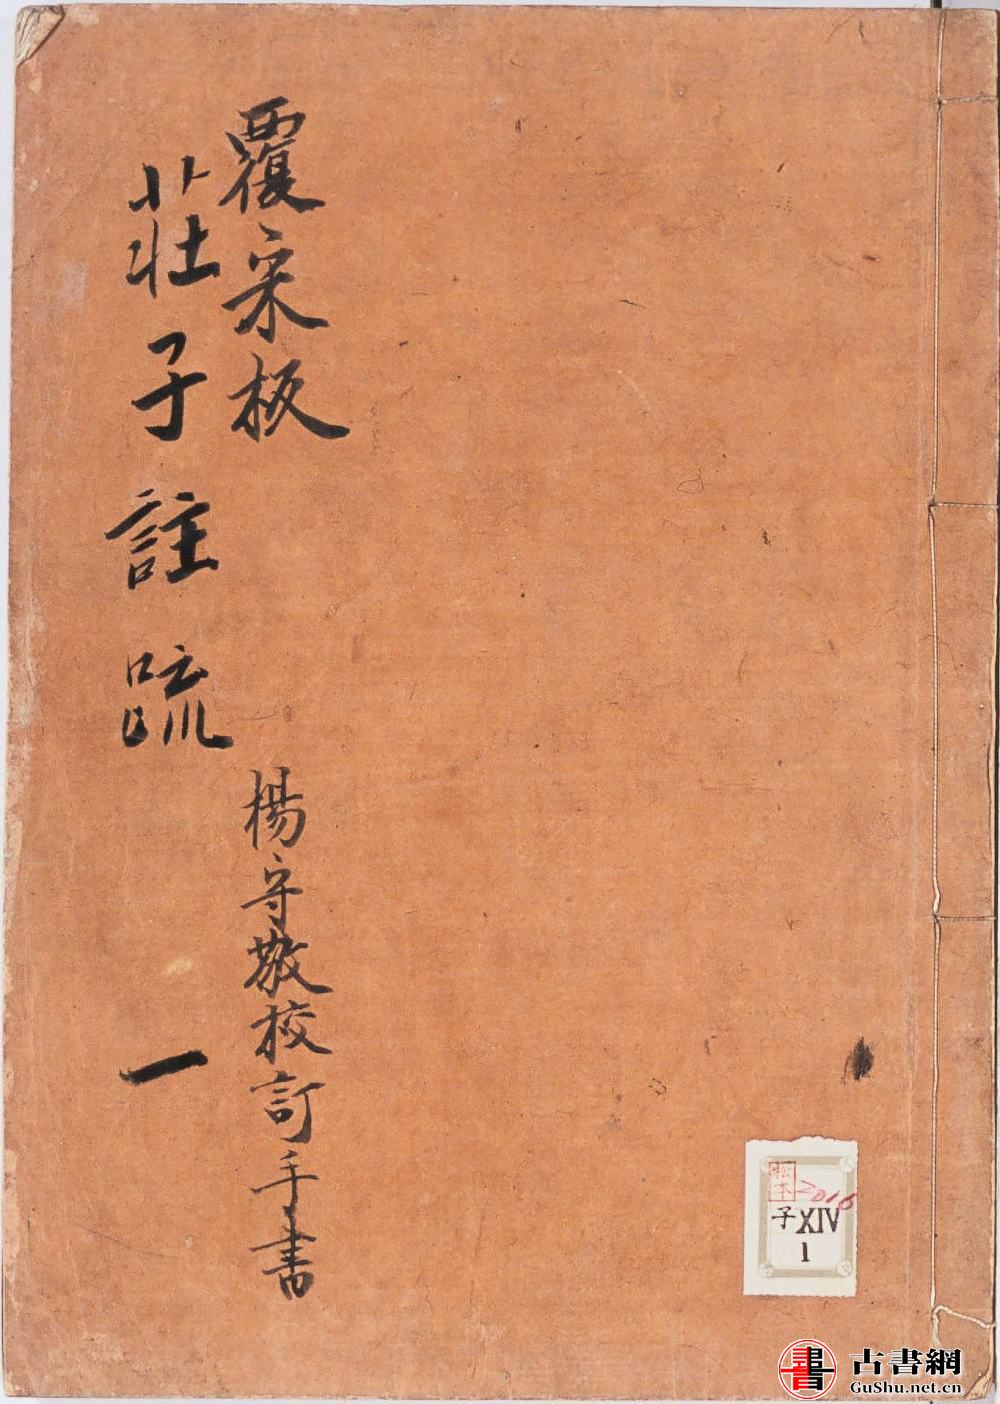 覆宋板
莊子註疏 一
楊守敬校訂手書
松本
2016
子XIV
1
書
古書網
GuShu.net.cn